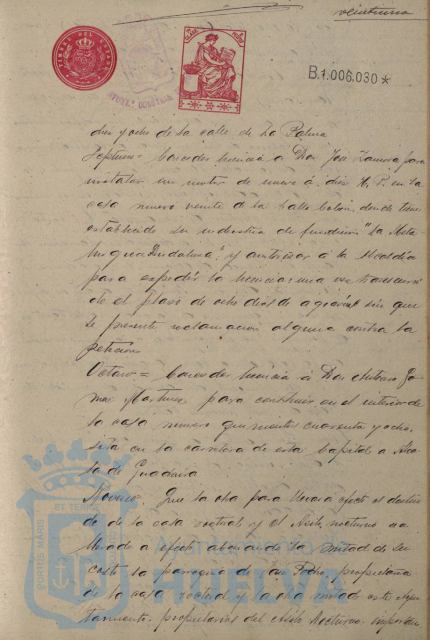 veintiuno
B.1.006.030*
diez y ocho de la calle de La Palma
Septimo = Conceder licencia a Don José Zamora para
instalar un motor de nueve á diez H. P. en la
casa numero veinte de la calle Colón, donde tiene
establecido su industria de fundición "La Meta-
lurgica Andaluza" y autorizar á la Alcaldía
para expedir la licencia una vez transcurri-
do el plazo de ocho días de agravios sin que
se presente reclamacion alguna contra la
peticion
Octavo = Conceder licencia á Don
Martinez para construir en el interior de
la casa numero quinientos cuarenta y ocho,
sita en la carretera de esta Capital á Alca-
lá de Guadaira
Noveno = Que la obra para llevar á efecto el deslin-
de de la casa rectoral y el Asilo nocturno sea
llevado á efecto abonando la mitad de su
coste la parroquia de San Pedro, propietaria
de la casa rectoral y la otra mitad este Ayun-
tamiento, propietario del Asilo Nocturno, importan
Ayuntamiento de
HUELVA
PORTUS MARIS ET TERRAE